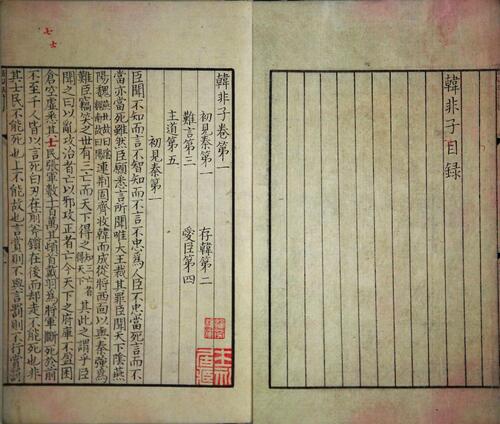 韓非子目録
韓非子卷第一
初見秦第一 存韓第二
難言第三 愛臣第四
主道第五
初見秦第一
臣聞不知而言不智知而不言不忠爲人臣不忠當死言而不
當亦當死雖然臣願悉言所聞唯大王裁其罪臣聞天下陰燕
陽魏連荆固齊收韓而成從將西面以與秦強爲
難臣竊笑之世有三亡而天下得之其此之謂乎臣
聞之曰以亂攻治者亡以邪攻正者亡今天下之府庫不盈囷
倉空虛悉其士民張軍數十百萬其頓首戴羽爲將軍斷死於前
不至千人皆以言死白刃在前斧鑕在後而却走不能死也非
其士民不能死也上不能故也言賞則不與言罰則不行賞罰
七
士